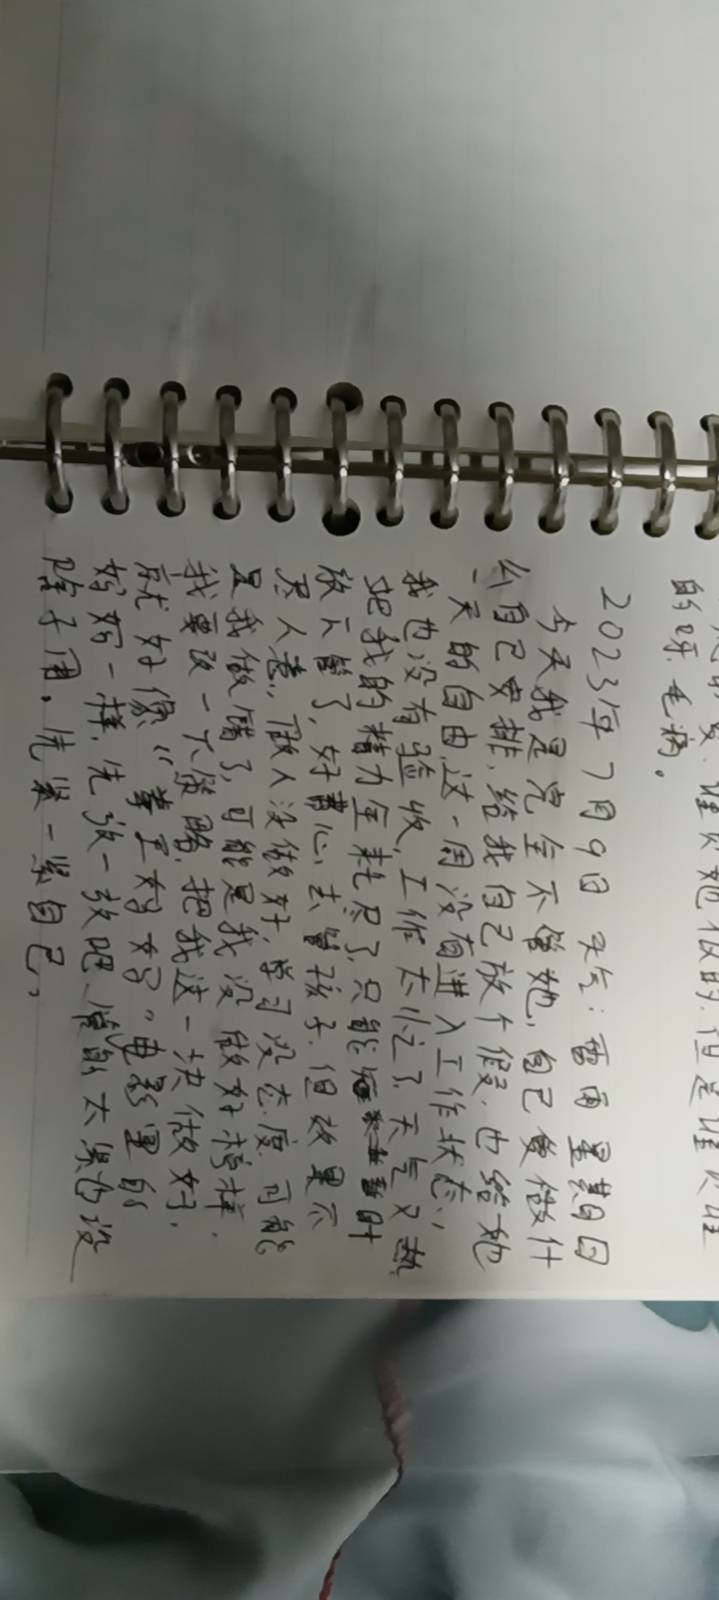 但是谁火谁
的呀.毛病。
2023年7月9日 天气:雷雨 星期日
今天我是完全不管她,自己爱做什
么自己安排,给我自己放个假.也给她
一天的自由,这一周没有进入工作状态,
我也没有验收,工作太忙了,天气又热
把我的精力全耗尽了,只能暂时
放下管了,好费心去管孩子.但效果不
尽人意,做人没做好,学习没态度.可能
是我做错了,可能是我没做好榜样.
我要改一下策略,把我这一块做好,
就好像“拳王妈妈”电影里的
妈妈一样.先放一放吧
除子用.先紧一紧自己,